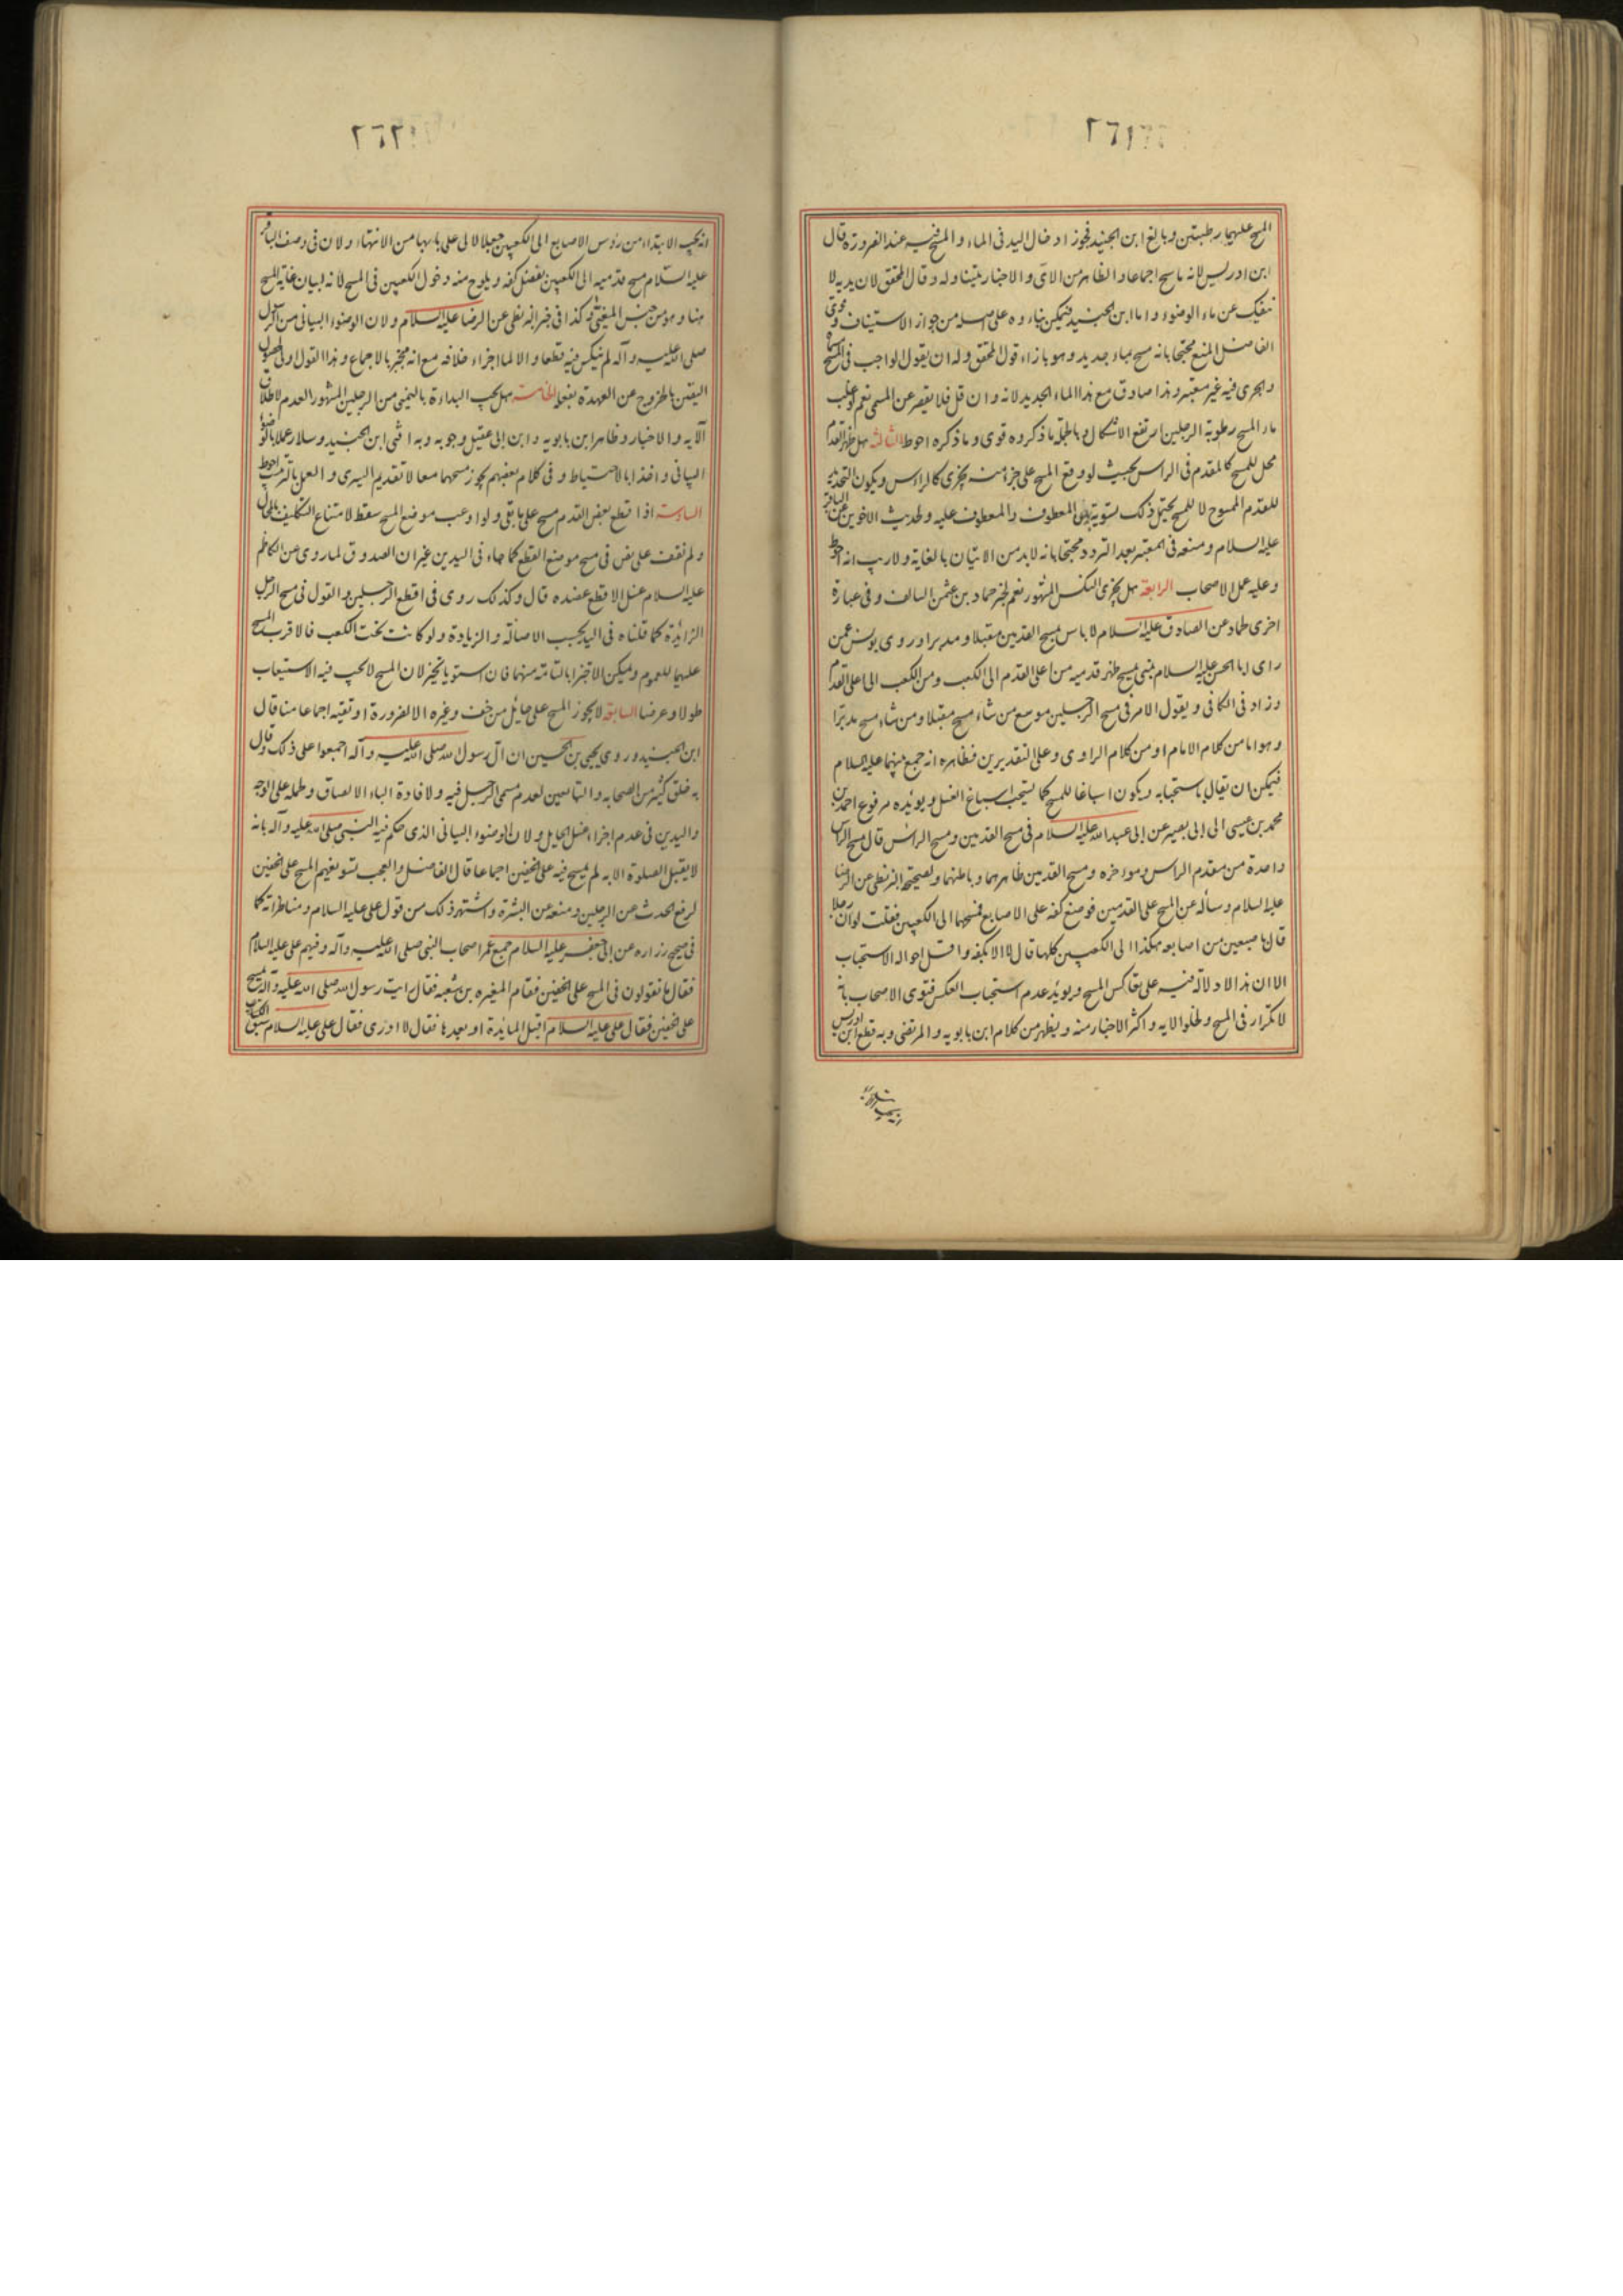 ٢٦١
المسح عليهما رطبتين وبالغ ابن الجنيد فجوز ادخال اليد فى الماء والمسح فيه عند الضرورة قال
ابن ادريس لانه ماسح اجماعا والظاهر من الآى والاخبار يتناوله وقال المحقق لان يديه لا
تنفك عن ماء الوضوء واما ابن الجنيد فيمكن بناءه على اصله من جواز الاستيناف وقوى
الفاضل المنع محتجا بانه مسح بماء جديد وهو بازاء قول المحقق وله ان يقول الواجب فى المسح
والجرى فيه غير معتبر وهذا صادق مع هذا الماء الجديد لانه وان قل فلا يقصر عن المسمى نعم لو غلب
ماء المسح رطوبة الرجلين ارتفع الاشكال وبالجملة ما ذكروه قوى وما ذكره احوط الثالثة هل ظهر القدم
محل للمسح كالمقدم فى الراس بحيث لو وقع المسح على جزء منه يجزى كالراس ويكون التحديد
للقدم الممسوح لا للمسح يحتمل ذلك تسوية بين المعطوف والمعطوف عليه ولحديث الاخوين عن الباقر
عليه السلام ومنعه فى المعتبر بعد التردد محتجا بانه لا بد من الاتيان بالغاية ولا ريب انه احوط
وعليه عمل الاصحاب الرابعة هل يجزى النكس المشهور نعم لخبر حماد بن عثمن السالف وفى عبارة
اخرى لحماد عن الصادق عليه السلام لا باس بمسح القدمين مقبلا ومدبرا وروى يونس عمن
راى ابا الحسن عليه السلام بمنى يمسح ظهر قدميه من اعلى القدم الى الكعب ومن الكعب الى اعلى القدم
وزاد فى الكافى ويقول الامر فى مسح الرجلين موسع من شاء مسح مقبلا ومن شاء مسح مدبرا
وهو اما من كلام الامام او من كلام الراوى وعلى التقديرين فظاهره انه جمع بينهما عليه السلام
فيمكن ان يقال باستحبابه ويكون اسباغا للمسح كما يستحب اسباغ الغسل ويؤيده مرفوع احمد بن
محمد بن عيسى الى ابى بصير عن ابى عبد الله عليه السلام فى مسح القدمين ومسح الراس قال مسح الراس
واحدة من مقدم الراس ومواخره ومسح القدمين ظاهرهما وباطنهما ولصحيحة البزنطى عن الرضا
عليه السلام وساله عن المسح على القدمين فوضع كفه على الاصابع فمسحها الى الكعبين فقلت لو ان رجلا
قال باصبعين من اصابعه هكذا الى الكعبين كلها قال لا الا بكفه واقل احواله الاستحباب
الا ان هذا لا دلالة فيه على تعاكس المسح ويويد عدم استحباب العكس فتوى الاصحاب بانه
لا تكرار فى المسح ولخلو الايه واكثر الاخبار منه ويظهر من كلام ابن بابويه والمرتضى وبه قطع ابن ادريس
٢٦٢
انه يجب الابتداء من رؤس الاصابع الى الكعبين جعلا لالى على بابها من الانتهاء ولان فى وصف الباقر
عليه السلام مسح قدميه الى الكعبين بفضل كفه ويلوح منه دخول الكعبين فى المسح لانه لبيان غاية المسح
هنا وهو من جنس المغيى وكذا فى خبر البزنطى عن الرضا عليه السلام ولان الوضوء البيانى من الرسول
صلى الله عليه وآله لم ينكس فيه قطعا والا لما اجزاء خلافه مع انه مجز بالاجماع وهذا القول اولى لحصول
اليقين بالخروج عن العهدة بفعله الخامسة هل يجب البداءة باليمنى من الرجلين المشهور العدم لاطلاق
الآيه والاخبار وظاهر ابن بابويه وابن ابى عقيل وجوبه وبه افتى ابن الجنيد وسلار عملا بالوضوء
البيانى واخذا بالاحتياط وفى كلام بعضهم يجوز مسحهما معا لا تقديم اليسرى والعمل بالترتيب احوط
السادسة اذا قطع بعض القدم مسح على ما بقى ولو اوعب موضع المسح سقط لامتناع التكليف بالمحال
ولم نقف على نص فى مسح موضع القطع كما جاء فى اليدين غير ان الصدوق لما روى عن الكاظم
عليه السلام غسل الاقطع عضده قال وكذلك روى فى اقطع الرجلين والقول فى مسح الرجل
الزايدة كما قلناه فى اليد بحسب الاصالة والزيادة ولو كانت تحت الكعب فالاقرب المسح
عليهما للعموم ويمكن الاجتزا بالتامة منهما فان استويا تخير لان المسح لا يجب فيه الاستيعاب
طولا وعرضا السابعة لا يجوز المسح على حائل من خف وغيره الا لضرورة او تقيه اجماعا منا قال
ابن الجنيد وروى يحيى بن الحسين ان آل رسول الله صلى الله عليه وآله اجمعوا على ذلك وقال
به خلق كثير من الصحابه والتابعين لعدم مسمى الرجل فيه ولافادة الباء الالصاق وحمله على الوجه
واليدين فى عدم اجزاء غسل الحايل ولان الوضوء البيانى الذى حكم فيه النبى صلى الله عليه وآله بانه
لا يقبل الصلوة الا به لم يمسح فيه على الخفين اجماعا قال الفاضل والعجب تسويغهم المسح على الخفين
لرفع الحدث عن الرجلين ومنعه عن البشرة واشتهر ذلك من قول على عليه السلام ومناظراته كما
فى صحيح زراره عن ابى جعفر عليه السلام جمع عمر اصحاب النبى صلى الله عليه وآله وفيهم على عليه السلام
فقال ما تقولون فى المسح على الخفين فقام المغيره بن شعبه فقال رايت رسول الله صلى الله عليه وآله يمسح
على الخفين فقال على عليه السلام اقبل المايدة او بعدها فقال لا ادرى فقال على عليه السلام سبق الكتاب